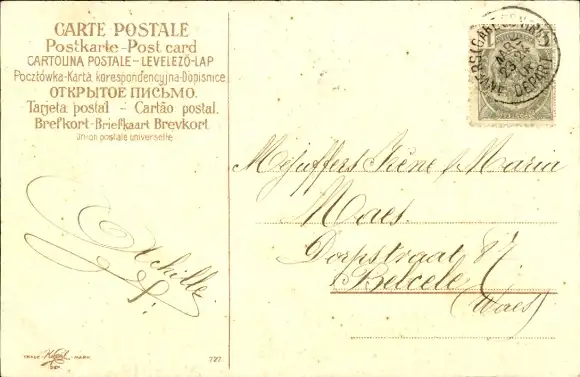 CARTE POSTALE
Postkarte-Post card
CARTOLINA POSTALE-LEVELEZŐ-LAP
Pocztówka-Karta korespondencyjna-Dopisnice
ОТКРЫТОЕ ПИСЬМО.
Tarjeta postal - Cartão postal.
Brefkort-Briefkaart Brevkort
Union postale universelle
DEPART
Mejuffers Irène & Maria
Maes.
Dorpstraat 87
Belcele
(Waes)
Achille
TRADE
MARK
727